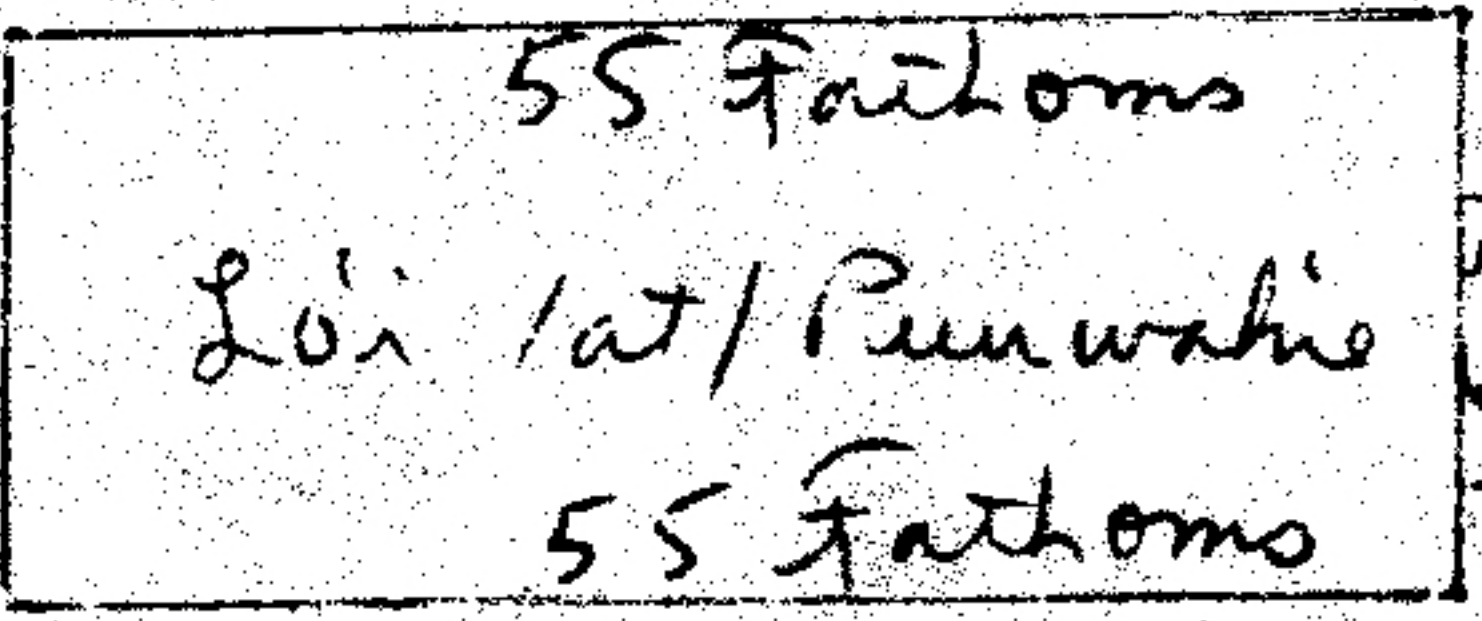 55 Fathoms
Lo'i /at/ Puuwahie
55 Fathoms